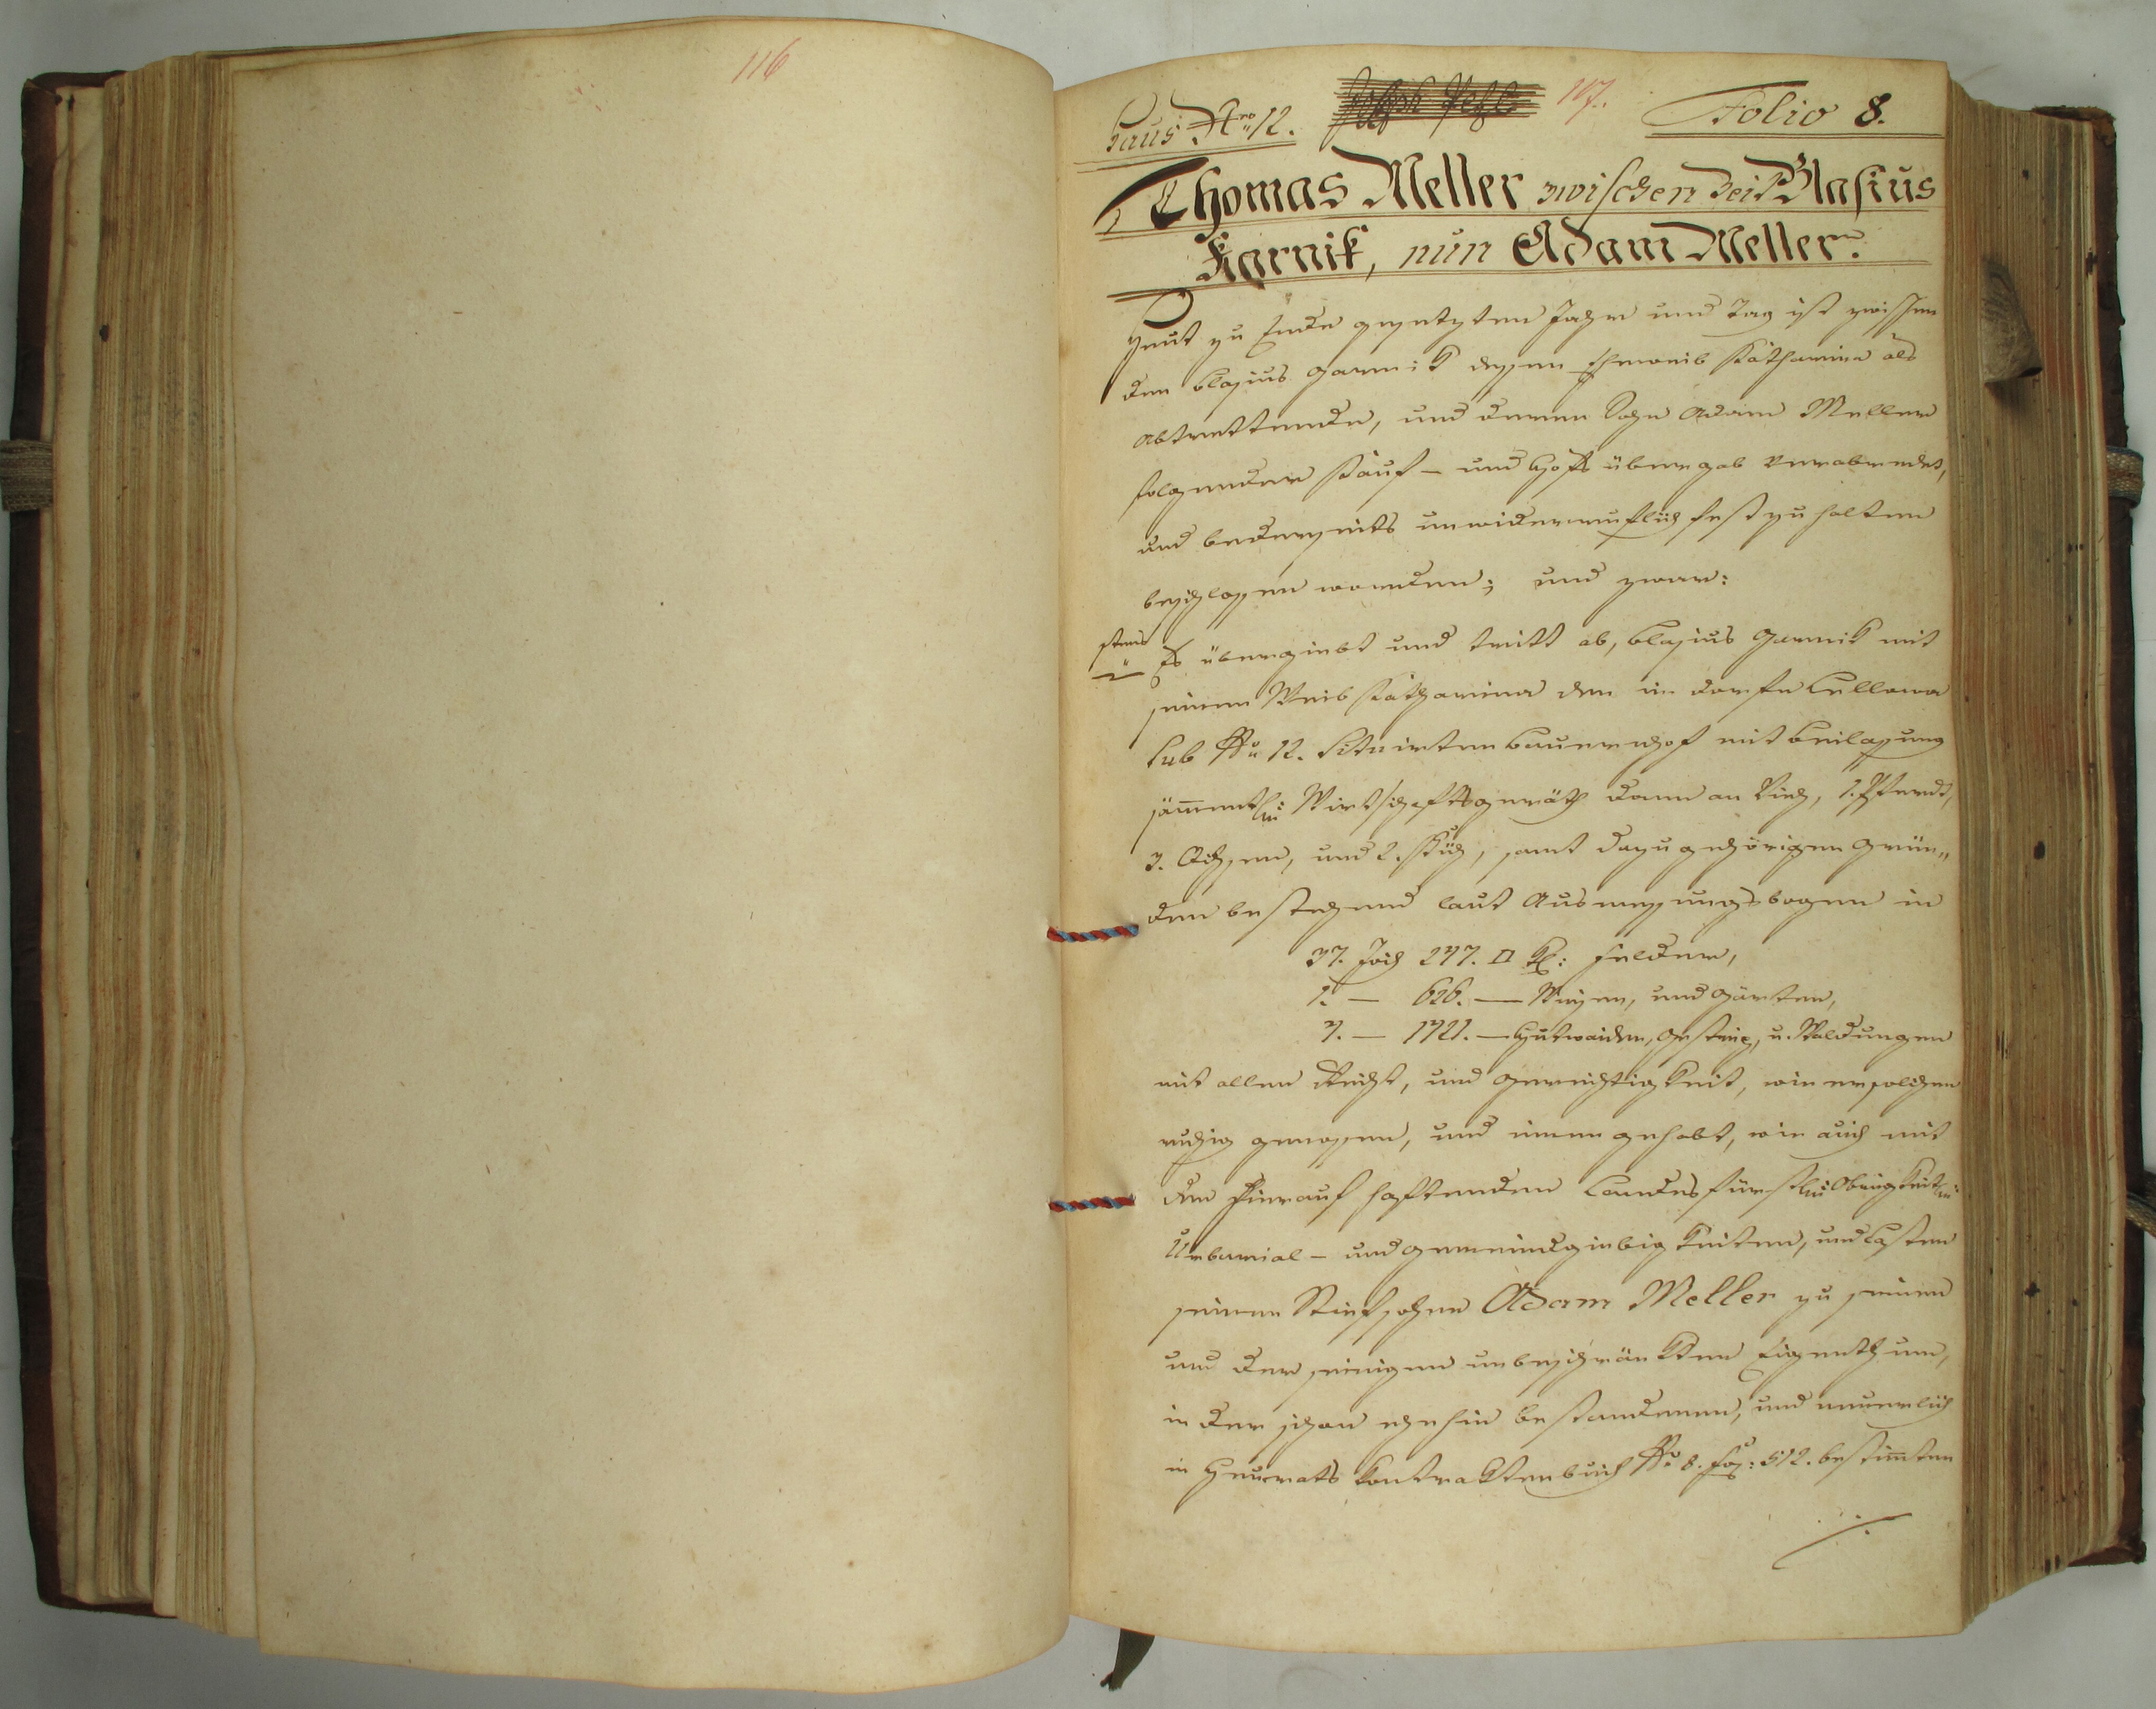 116
Haus Nro 12. 117. Folio 8.
Thomas Meller zwischen Zeit Blasius
Karnik, nun Adam Meller.
Heut zu Ende gesetzten Jahr und Tag ist zwischen
den Blasius Garnik dessen Eheweib Katharina als
Abtrettende, und deren Sohn Adam Meller
folgender Kauf- und Hofs übergab verabredet,
und bederseits unwiderruflich fest zu halten
beschlossen worden; und zwar:
Es übergiebt und tritt ab, Blasius Garnik mit
seinem Weib Katharina den im Dorfe Lellowa
Sub No 12. Situirten Bauernhof mit Beilassung
sämmentl: Wirtschaftsgeräth dann an Vieh, 1. Pferdt,
3. Ochsen, und 2. Küh, samt dazu gehörigen Grün„
den bestehend laut Ausmessungsbogen in
37. Joch 247. □ Kl: Felder,
1. — 626. — Wiesen, und Gärten,
7. — 1721. — Hutweiden, Gestrüp, u. Waldungen
mit allen Recht, und Gerechtigkeit, wie er solchen
ruhig genossen, und innen gehabt, wie auch mit
den hierauf haftenden Landesfürstl: Obrigkeitl:
Urbarial- und Gemeindgiebigkeiten, und Lasten
seinem Stiefsohne Adam Meller zu seinem
und der seinigen unbeschränkten Eigenthum,
in der schon ehehin bestandenen, und neuerlich
in Heurats Kontraktenbuch No 8. Fol: 512. bestimten